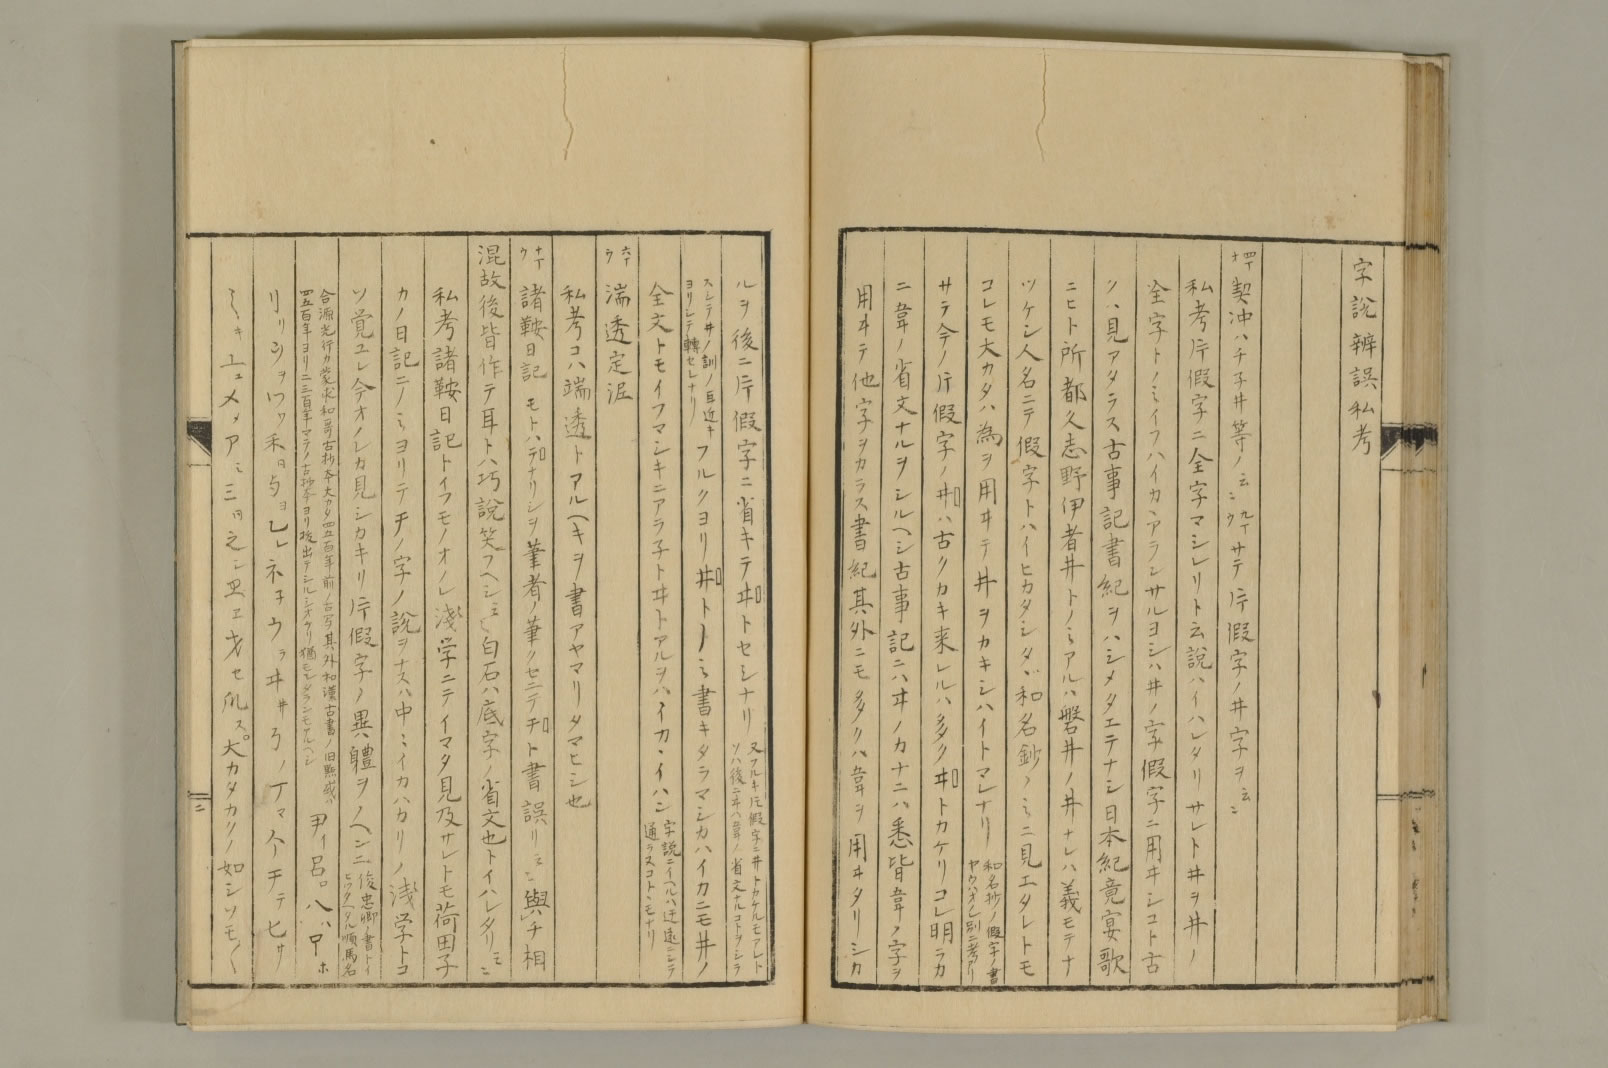 字說辨誤私考
四丁オ 契沖ハチ子井等ノ云〻 九丁ウ サテ片假字ノ井字ヲ云〻
私考片假字ニ全字マシレリト云說ハイハレタリサレト井ヲ井ノ
全字トノミイフハイカヽアランサルヨシハ井ノ字假字ニ用ヰシコト古
クハ見アタラス古事記書紀ヲハシメタエテナシ日本紀竟宴歌
ニヒト所都久志野伊者井トノミアルハ磐井ノ井ナレハ義モテナ
ツケシ人名ニテ假字トハイヒカタシタヽ和名鈔ノミニ見エタレトモ
コレモ大カタハ為ヲ用ヰテ井ヲカキシハイトマレナリ 和名抄ノ假字ノ書
ヤウハオノレ別ニ考アリ
サテ今ノ片假字ノ井ハ古クカキ来レルハ多ク井トカケリコレ明ラカ
ニ韋ノ省文ナルヲシルヘシ古事記ニハヰノカナニハ悉皆韋ノ字ヲ
用ヰテ他字ヲカラス書紀其外ニモ多クハ韋ヲ用ヰタリシカ
ルヲ後ニ片假字ニ省キテ井トセシナリ 又フルキ片假字ニ井トカケルモアレト
ソハ後ニヰハ韋ノ省文ナルコトヲシラ
スシテ井ノ訓ノ耳近キ
ヨリシテ轉セシナリ フルクヨリ井トノミ書キタラマシカハイカニモ井ノ
全文トモイフマシキニアラ子トヰトアルヲハイカヽイハン 字說ニイヘルハ迂遠ニシテ
通ラヌコトヽモナリ
六丁ウ 湍透定泥
私考コハ端透トアルヘキヲ書アヤマリタマヒシ也
十丁ウ 諸鞍日記 モトハチナリシヲ筆者ノ筆クセニテチト書誤リ云〻與チ相
混故後皆作テ耳トハ巧說笑フヘシ云〻白石ハ底字ノ省文也トイハレタリ云〻
私考諸鞍日記トイフモノオノレ淺学ニテイマタ見及サレトモ荷田子
カノ日記ニノミヨリテチノ字ノ說ヲナスハ中〻ニイカハカリノ淺学トコ
ソ覚ユレ今オノレカ見シカキリ片假字ノ異體ヲノヘンニ 俊忠卿ノ書トイ
ヒツタヘタル順馬名
合源光行カ蒙求和哥古抄本大カタ四五百年前ノ古写其外和漢古書ノ旧點或ハ
四五百年ヨリ二三百年マテノ古抄本ヨリ抜出テシルシオケリ猶モレタランモアルヘシ 尹イ 呂ロ 八ハ 甲ホ